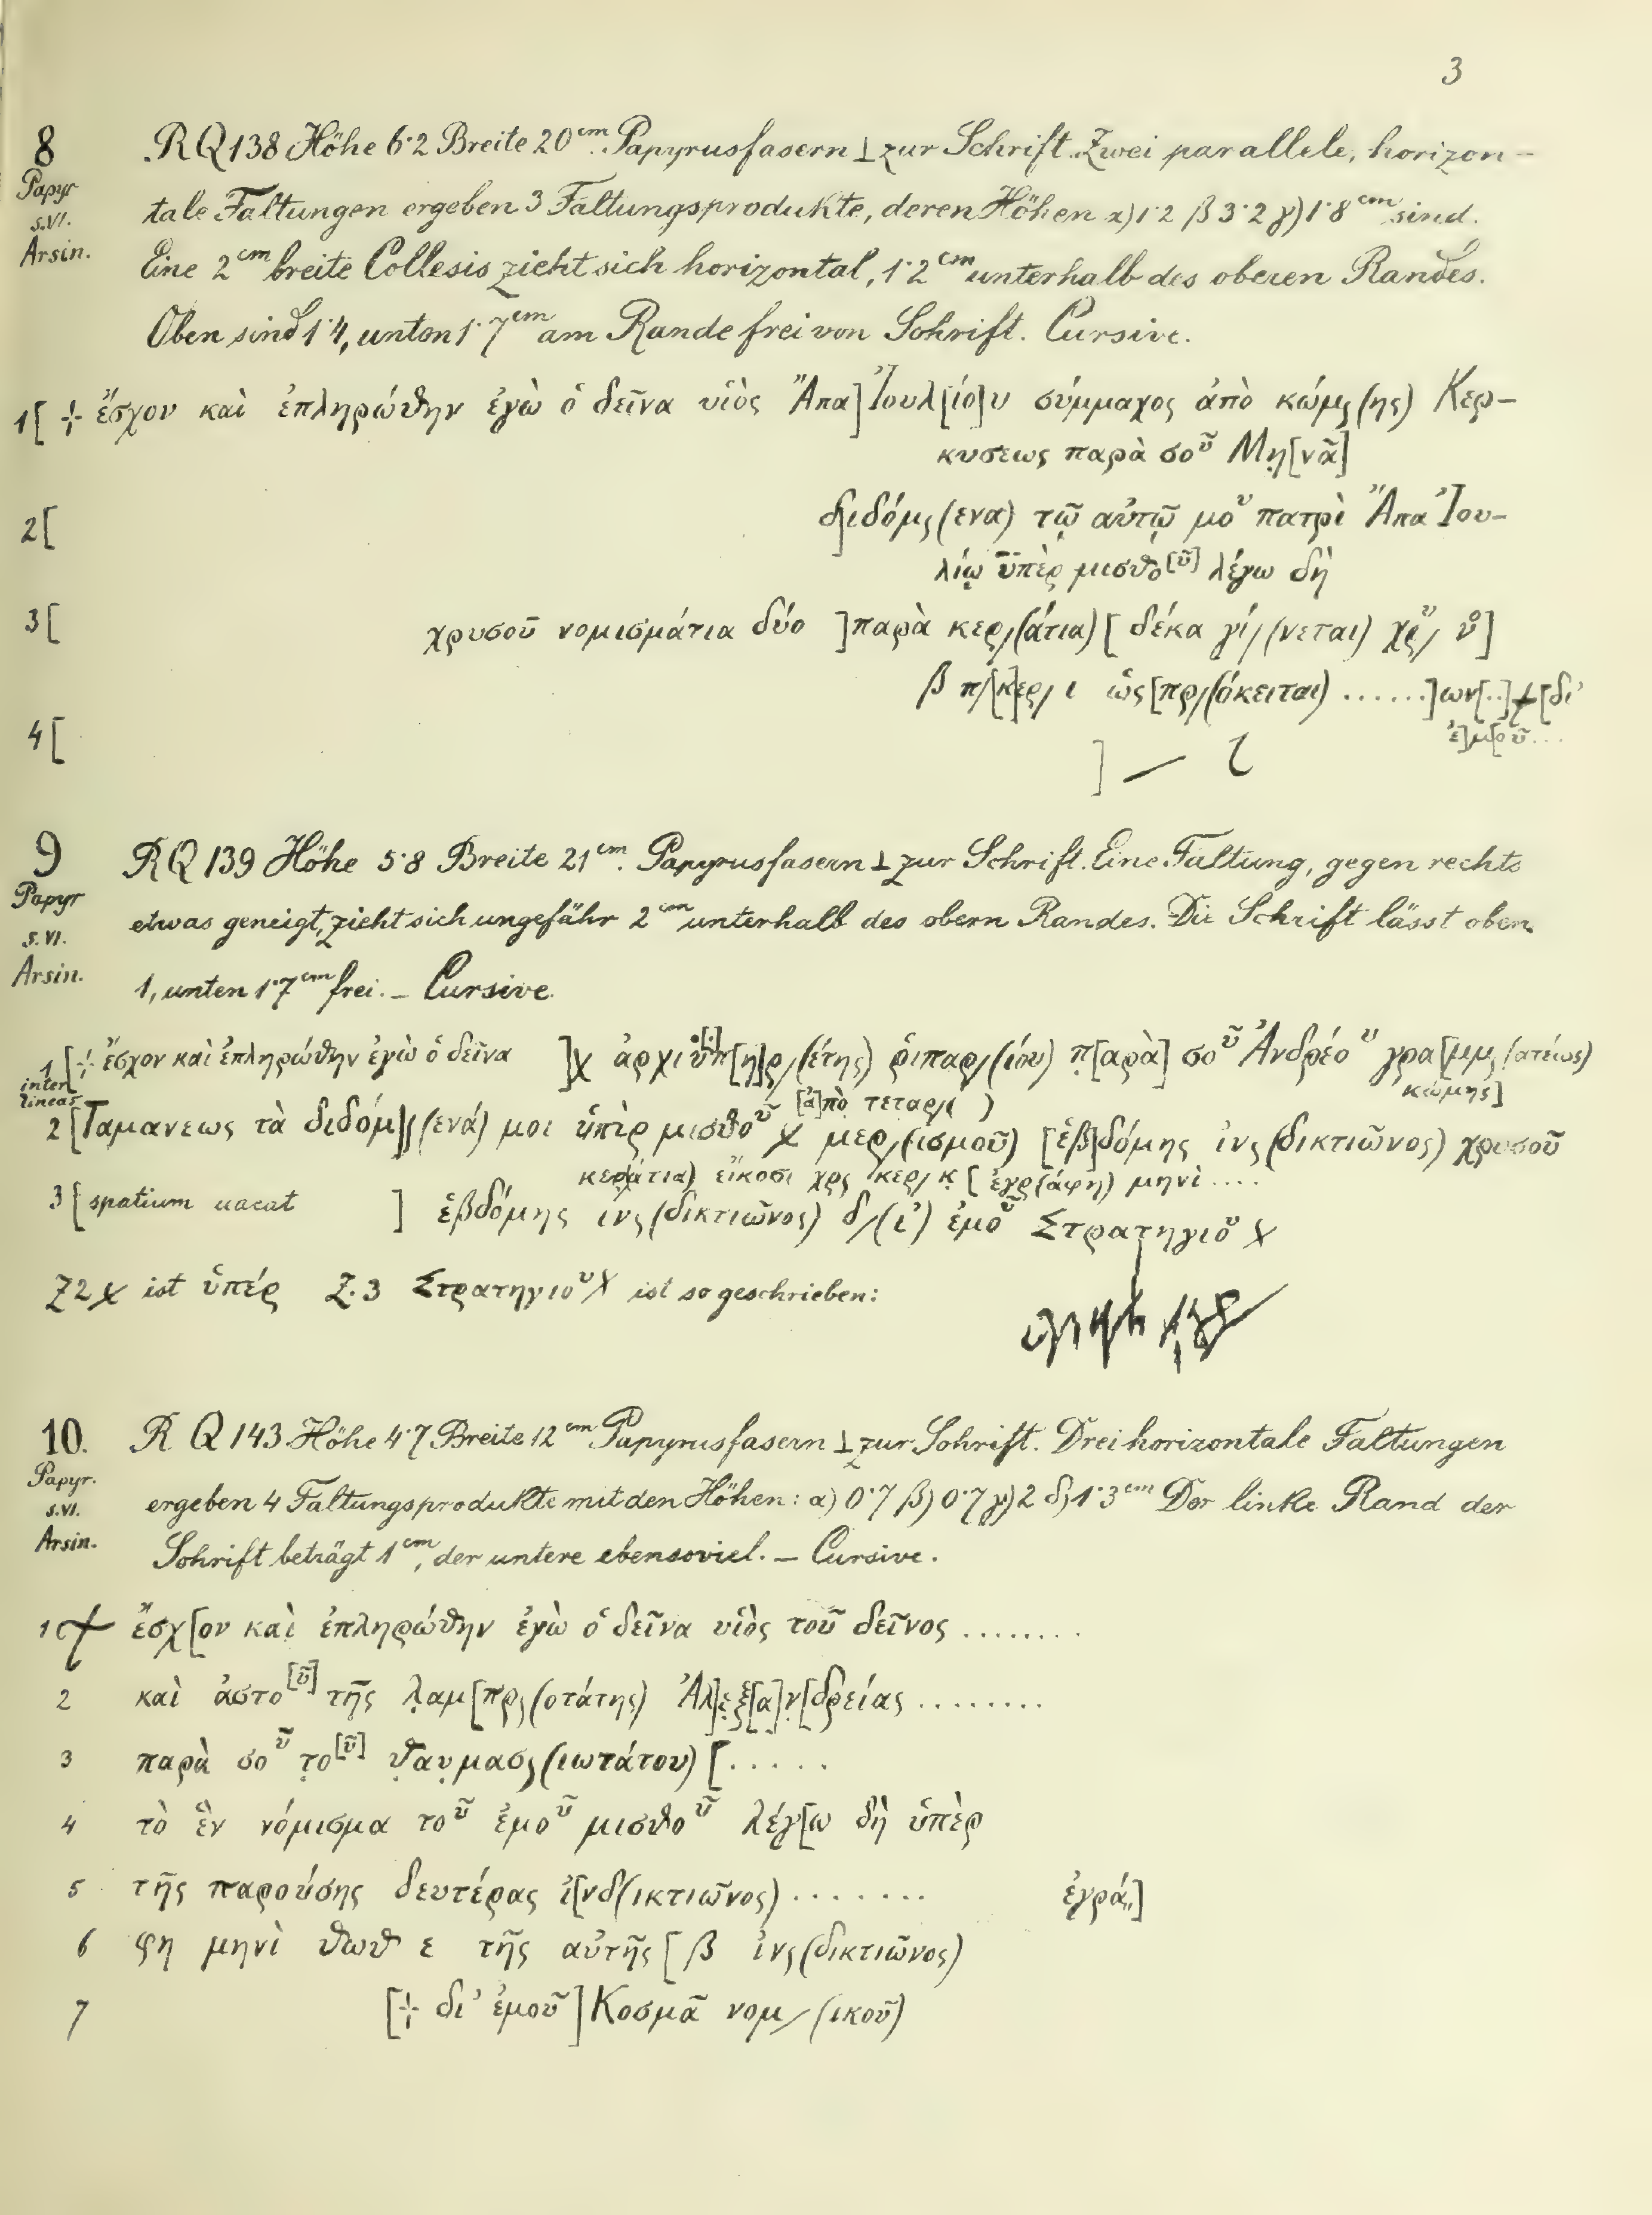 3
8 R Q 138 Höhe 6·2 Breite 20 cm. Papyrusfasern ⊥ zur Schrift. Zwei parallele, horizon-
Papyr
s. VI.
Arsin.
tale Faltungen ergeben 3 Faltungsprodukte, deren Höhen α) 1·2 β 3·2 γ) 1·8 cm sind.
Eine 2 cm breite Collesis zieht sich horizontal, 1·2 cm unterhalb des oberen Randes.
Oben sind 1·4, unten 1·7 cm am Rande frei von Schrift. Cursive.
1 [ ⳨ ἔσχον καὶ ἐπληρώθην ἐγὼ ὁ δεῖνα υἱὸς Ἄπα] Ἰουλ[ίο]υ σύμμαχος ἀπὸ κώμς(ης) Κερ-
κυσεως παρὰ σοῦ Μη[νᾶ]
2 [ διδόμς(ενα) τῷ αὐτῷ μοῦ πατρὶ Ἄπα Ἰου-
λίῳ ὑπὲρ μισθο[ῦ] λέγω δὴ
3 [ χρυσοῦ νομισμάτια δύο ] παρὰ κερ/(άτια) [ δέκα γί/(νεται) χς/ ν]
β π/[κ]ερ/ ι ὡς [πρ/(όκειται) ......]ων[..] ⳨ [δι'
ἐ]μ[οῦ...
4 [ ] —
9 R Q 139 Höhe 5·8 Breite 21 cm. Papyrusfasern ⊥ zur Schrift. Eine Faltung, gegen rechts
Papyr
s. VI.
Arsin.
etwas geneigt, zieht sich ungefähr 2 cm unterhalb des obern Randes. Die Schrift lässt oben
1, unten 1·7 cm frei. – Cursive.
1 [⳨ ἔσχον καὶ ἐπληρώθην ἐγὼ ὁ δεῖνα ]χ ἀρχιϋπ[η]ρ/(έτης) ῥιπαρ/(ίου) π[αρὰ] σοῦ Ἀνδρέου γρα[μμς(ατέως)
κώμης]
inter lineas [ἀ]πὸ τεταρ/( )
2 [Ταμανεως τὰ διδόμ](ενά) μοι ὑπὲρ μισθοῦ χ μερ/(ισμοῦ) [ἑβ]δόμης ἰνς(δικτιῶνος) χρυσοῦ
κερ(άτια) εἴκοσι χρς κερ/ κ [ ἐγρ(άφη) μηνὶ ....
3 [ spatium uacat ] ἑβδόμης ἰνς(δικτιῶνος) δ/(ι') ἐμοῦ Στρατηγίου χ
Z 2 χ ist ὑπέρ Z. 3 Στρατηγίου χ ist so geschrieben:
10. R Q 143 Höhe 4·7 Breite 12 cm Papyrusfasern ⊥ zur Schrift. Drei horizontale Faltungen
Papyr.
s. VI.
Arsin.
ergeben 4 Faltungsprodukte mit den Höhen: α) 0·7 β) 0·7 γ) 2 δ) 1·3 cm Der linke Rand der
Schrift beträgt 1 cm, der untere ebensoviel. – Cursive.
1 ⳨ ἔσχ[ον καὶ ἐπληρώθην ἐγὼ ὁ δεῖνα υἱὸς τοῦ δεῖνος ........
2 καὶ ἀστο[ῦ] τῆς λαμ[πρς(οτάτης) Ἀλ]εξ[α]ν[δρείας ........
3 παρὰ σοῦ το[ῦ] θαυμασς(ιωτάτου) [.....
4 τὸ ἓν νόμισμα τοῦ ἐμοῦ μισθοῦ λέγ[ω δὴ ὑπὲρ
5 τῆς παρούσης δευτέρας ἰ[νδ(ικτιῶνος) ....... ἐγρά,,]
6 φη μηνὶ θωθ ε τῆς αὐτῆς [ β ἰνς(δικτιῶνος)
7 [⳨ δι' ἐμοῦ] Κοσμᾶ νομ/(ικοῦ)